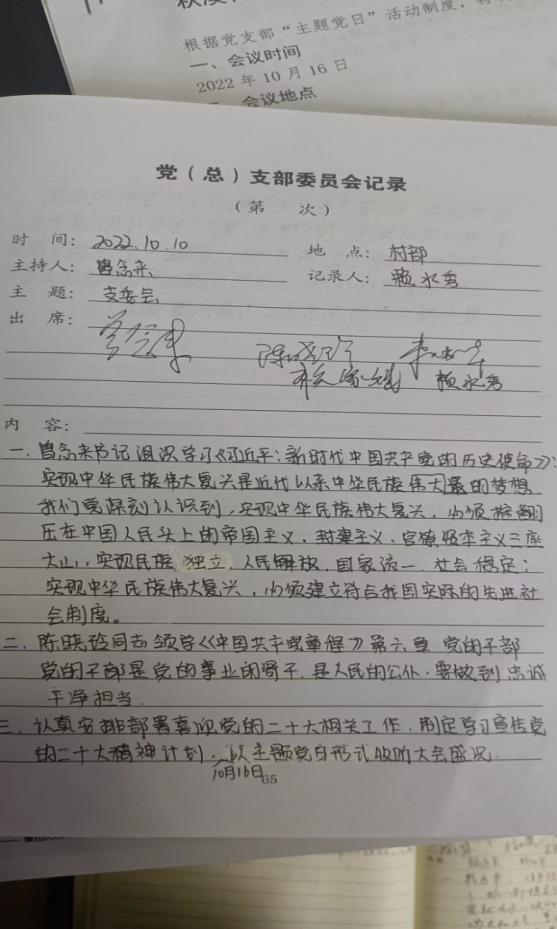 根据党支部“主题党日”活动制度,
一、会议时间
2022年10月16日
会议地点
党（总）支部委员会记录
（第 次）
时 间: 2022.10.10 地 点: 村部
主持人: 曾念来 记录人: 赖水秀
主 题: 支委会
出 席:
赖水秀
内 容:
一、曾念来书记组织学习《习近平:新时代中国共产党的历史使命》:
实现中华民族伟大复兴是近代以来中华民族伟大最的梦想
我们党深刻认识到,实现中华民族伟大复兴,必须推翻
压在中国人民头上的帝国主义、封建主义、官僚资本主义三座
大山,实现民族 独立、人民解放、国家统一、社会稳定;
实现中华民族伟大复兴,必须建立符合我国实际的先进社
会制度。
二、陈晓玲同志领学《中国共产党章程》第六章 党的干部
党的干部是党的事业的骨干,是人民的公仆,要做到忠诚
干净担当.
三、认真安排部署喜迎党的二十大相关工作,制定学习宣传党
的二十大精神计划.以主题党日形式收听大会盛况.
10月16日
65